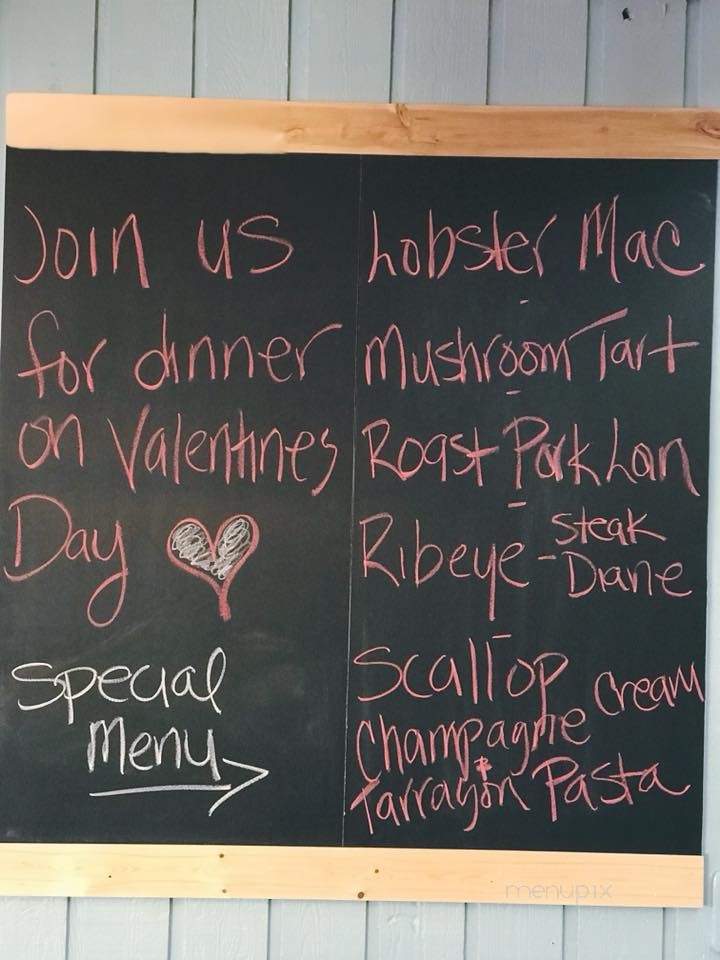 Join us
for dinner
on Valentines
Day
Special
Menu
Lobster Mac
-
Mushroom Tart
-
Roast Pork Loin
-
Ribeye - Steak
Diane
-
Scallop
Champagne Cream
& Tarragon Pasta
menupix